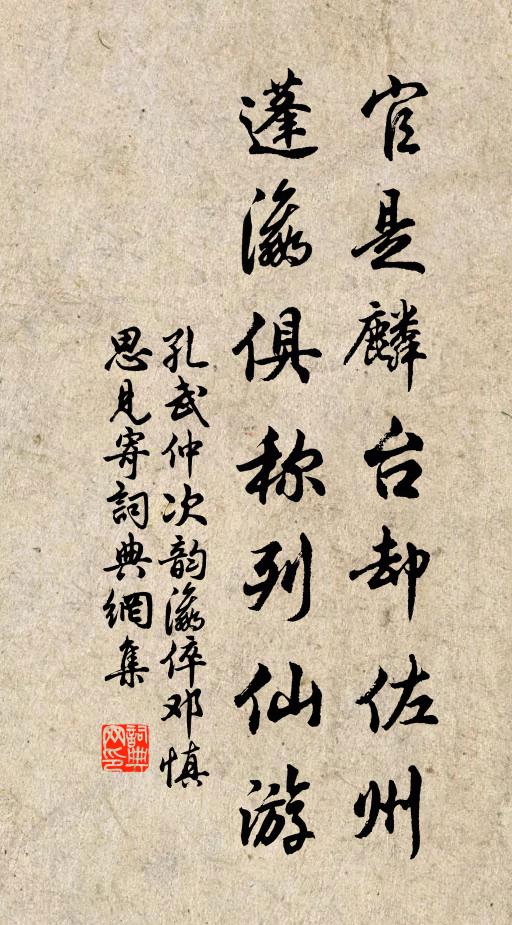 官是麟台却佐州
蓬瀛俱称列仙游
孔武仲次韵瀛倅邓慎
思见寄詞典網集
詞典
网印